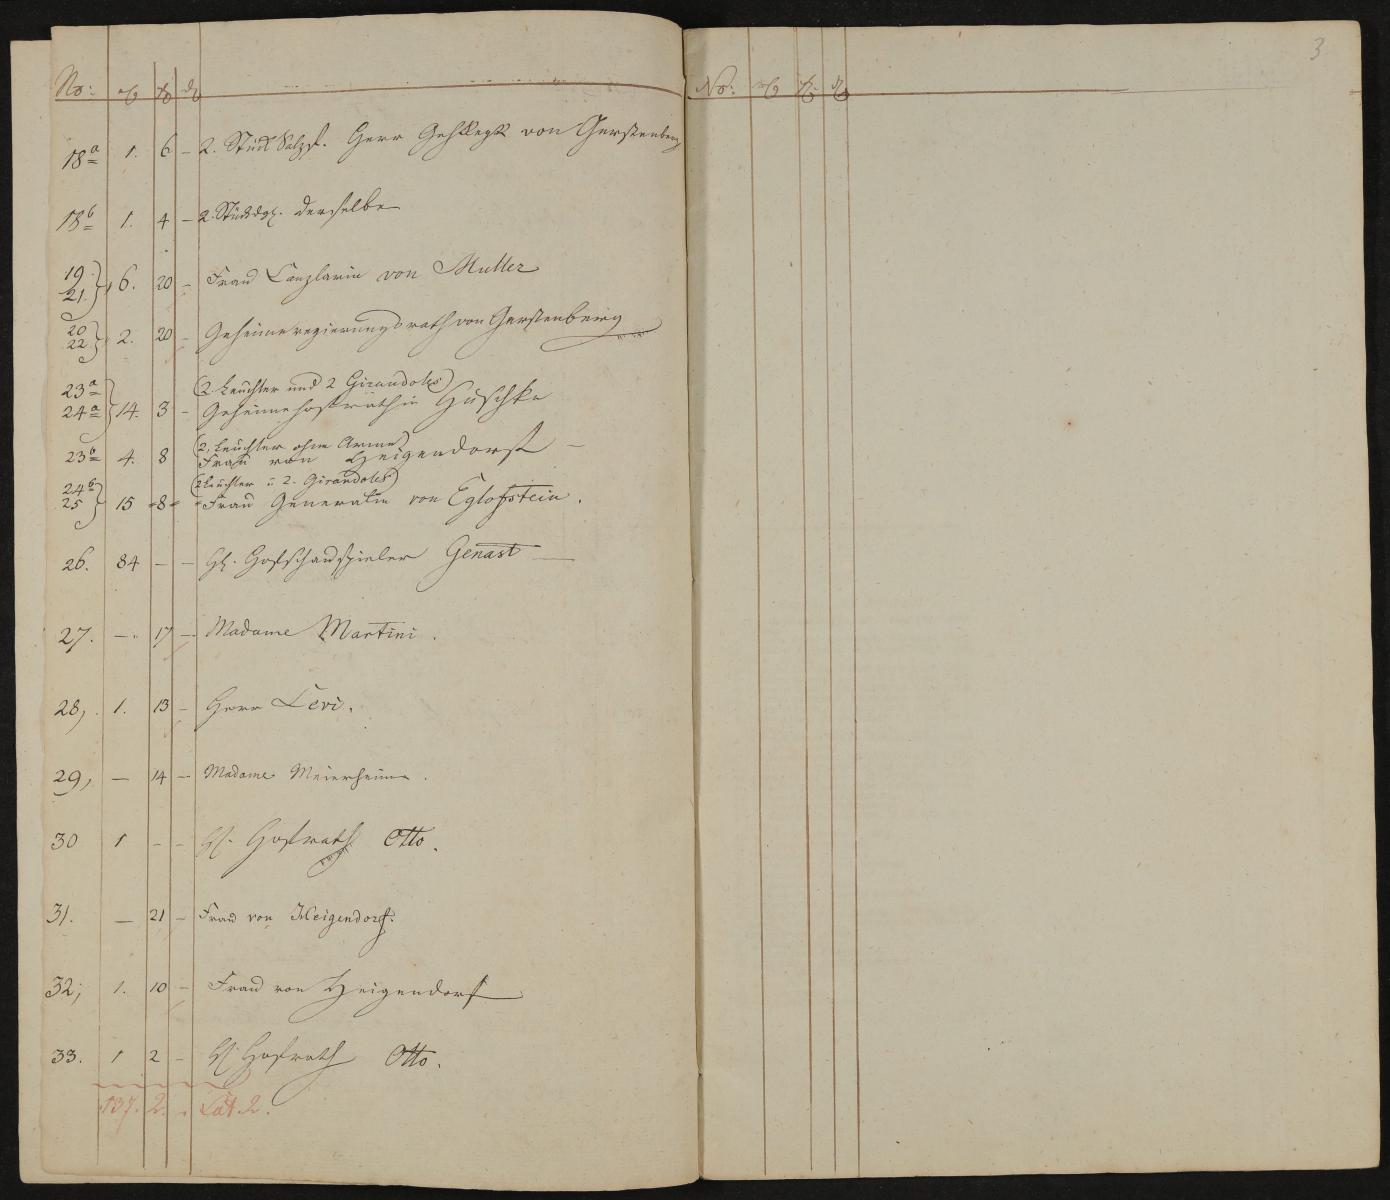 No:
18a 1. 6 – 2. Stück Herr von Gerstenberg
18b 1. 4 – 2. Stück dgl. derselbe
19.
21. 6. 20 – Frau Canzlarin von Muller
20
22 2. 20 – Geheimeregierungsrath von Gerstenberg
23a (2 Leuchter und 2 Girandoles)
24a 14. 3 – Geheimehofräthin Huschke
(2. Leuchter ohne Arme)
23b 4. 8 Frau von Heigendorf –
24b (2 Leuchter u 2. Girandoles)
25 15 8 Frau Generalin von Eglofstein.
26. 84 – – H. Hofschauspieler Genast
27. – 17 – Madame Martini.
28, 1. 13 – Herr Levi.
29, – 14 – Madame Meierheim.
30 1 – – H. Hofrath Otto.
31. – 21 – Frau von Heigendorf.
32; 1. 10 – Frau von Heigendorf
33. 1 2 – H. Hofrath Otto.
137. 2. Lat. 2.
No:
3